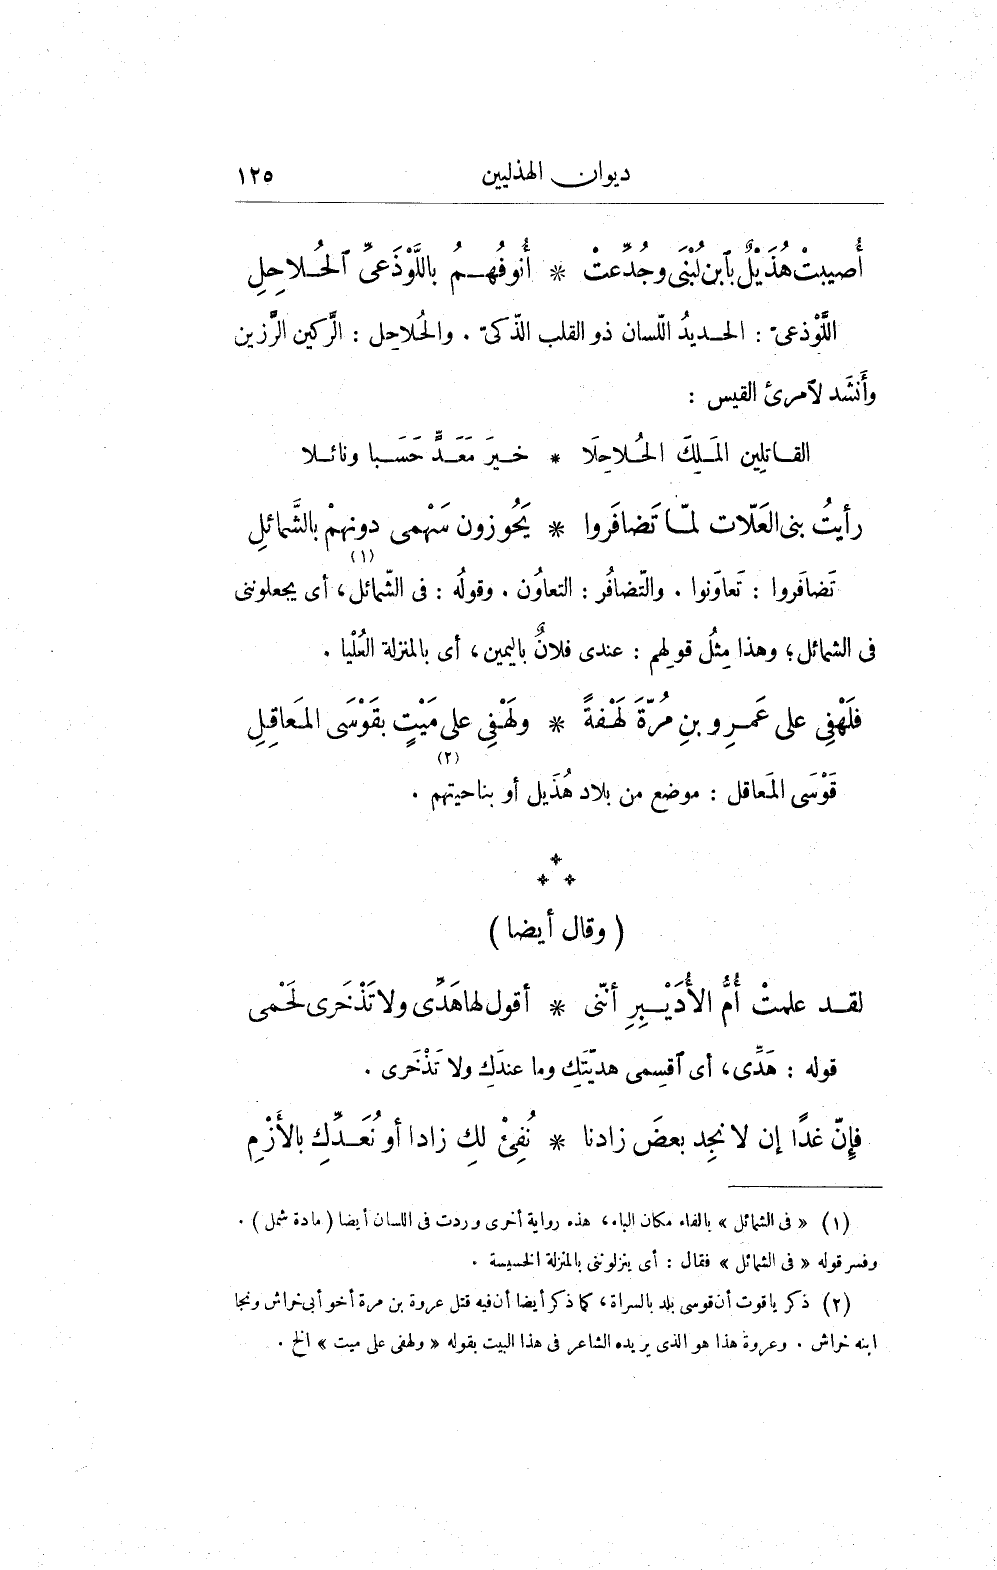 ديوان الهذليين ١٢٥
أُصيبتْ هُذَيْلٌ بٱبن لُبْنَى وجُدِّعتْ * أُنوفُهـمُ باللَّوْذَعىِّ ٱلحُـلاحِلِ
اللَّوْذعىّ : الحـديدُ اللّسان ذو القلب الذّكىّ . والحُلاحِل : الرَّكين الرَّزين
وأَنشَد لآمرئ القيس :
القـاتلِين المَـلِكَ الحُـلاحِلَا * خـيرَ مَعَـدٍّ حَسَـبا ونائـلا
رأيتُ بنى العَلّات لمّـا تَضافَروا * يَحُوزون سَهْمى دونهمْ بالشَّمائلِ
(١)
تَضافَروا : تَعاوَنوا . والتّضافُر : التعاوُن . وقولُه : فى الشّمائل، أى يجعلوننى
فى الشمائل؛ وهذا مِثلُ قولهم : عندى فلانٌ باليمين، أى بالمنزلة العُلْيا .
فلَهْفِى على عَمـرِو بنِ مُرّةَ لَهْفةً * ولَهْفِى على مَيْتٍ بقَوْسَى المَعاقِلِ
(٢)
قَوْسَى المَعاقل : موضع من بلاد هُذَيل أو بناحيتهم .
( وقال أيضا )
لقـد علمتْ أُمُّ الأُدَيْـبِرِ أنّنى * أقول لها هَدِّى ولا تَذْخَرى لَحْمى
قوله : هَدِّى، أى ٱقسِمى هديّتَكِ وما عندَكِ ولا تَذْخَرى .
فإنّ غدًا إن لا نجِد بعضَ زادنا * نُفِئْ لكِ زادا أو نُعَـدِّكِ بالأَزْمِ
(١) « فى الشمائل » بالفاء مكان الباء، هذه رواية أخرى وردت فى اللسان أيضا ( مادة شمل ) .
وفسر قوله « فى الشمائل » فقال : أى ينزلوننى بالمنزلة الخسيسة .
(٢) ذكر ياقوت أن قوسى بلد بالسراة، كما ذكر أيضا أن فيه قتل عروة بن مرة أخو أبى خراش ونجا
ابنه خراش . وعروة هذا هو الذى يريده الشاعر فى هذا البيت بقوله « ولهفى على ميت » الخ .